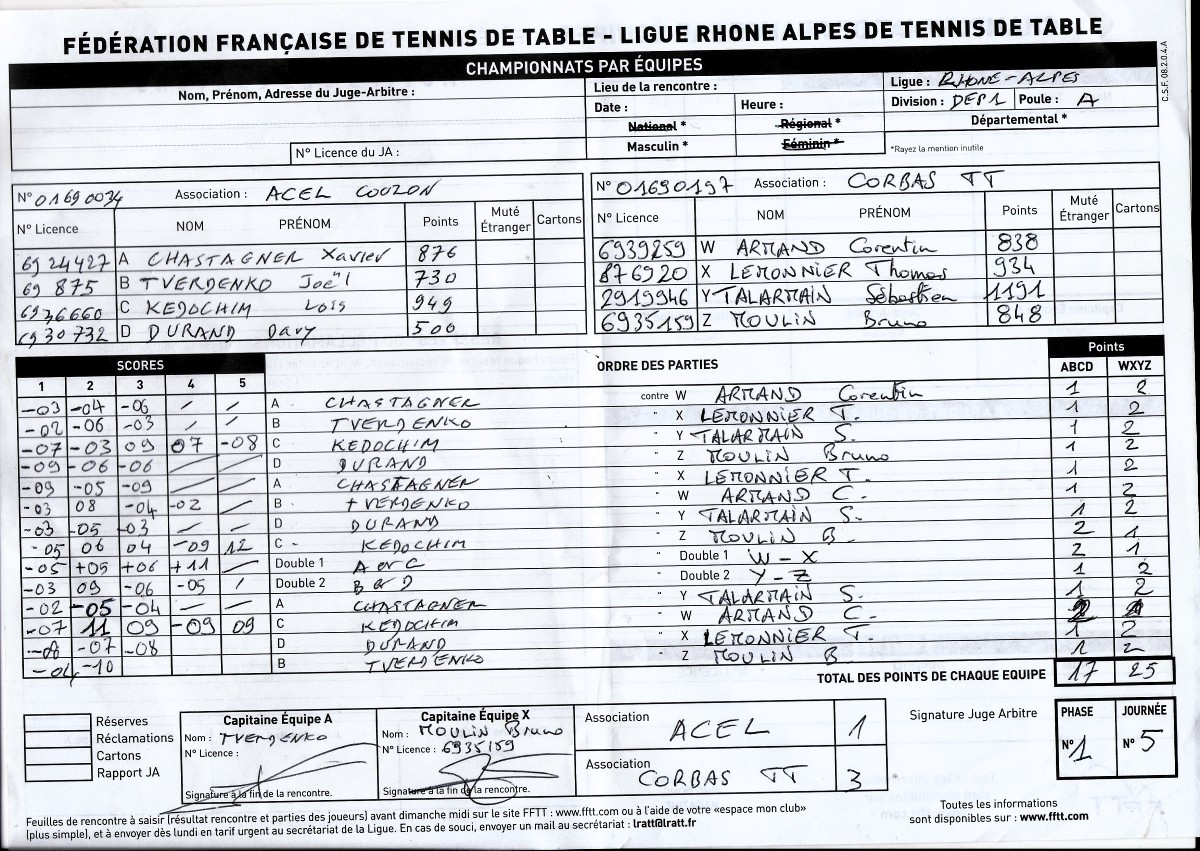 FÉDÉRATION FRANÇAISE DE TENNIS DE TABLE - LIGUE RHONE ALPES DE TENNIS DE TABLE
C.S.F. 08.2.0.4.A
CHAMPIONNATS PAR ÉQUIPES
Nom, Prénom, Adresse du Juge-Arbitre :
Lieu de la rencontre :
Ligue : RHONE-ALPES
Date : Heure :
Division : DEP1 Poule : A
National * Régional *
Départemental *
Masculin * Féminin *
*Rayez la mention inutile
N° Licence du JA :
N° 01690034 Association : ACEL COUZON
N° Licence NOM PRÉNOM Points Muté Étranger Cartons
6924427 A CHASTAGNER Xavier 876
69 875 B TVERDENKO Joël 730
6936660 C KEDOCHIM Loïs 949
6930732 D DURAND Davy 500
N° 01690197 Association : CORBAS TT
N° Licence NOM PRÉNOM Points Muté Étranger Cartons
6939259 W ARMAND Corentin 838
876920 X LEMONNIER Thomas 934
2919946 Y TALARMAIN Sébastien 1191
6935159 Z MOULIN Bruno 848
SCORES ORDRE DES PARTIES Points
1 2 3 4 5 ABCD WXYZ
-03 -04 -06 / / A CHASTAGNER contre W ARMAND Corentin 1 2
-02 -06 -03 / / B TVERDENKO " X LEMONNIER T. 1 2
-07 -03 09 07 -08 C KEDOCHIM " Y TALARMAIN S. 1 2
-09 -06 -06 D DURAND " Z MOULIN Bruno 1 2
-09 -05 -09 A CHASTAGNER " X LEMONNIER T. 1 2
-03 08 -04 -02 / B TVERDENKO " W ARMAND C. 1 2
-03 -05 -03 / / D DURAND " Y TALARMAIN S. 1 2
-05 06 04 -09 12 C KEDOCHIM " Z MOULIN B. 2 1
-05 +05 +06 +11 / Double 1 A et C " Double 1 W-X 2 1
-03 09 -06 -05 / Double 2 B et D " Double 2 Y-Z 1 2
-02 -05 -04 / / A CHASTAGNER " Y TALARMAIN S. 1 2
-07 11 09 -09 09 C KEDOCHIM " W ARMAND C. 2 1
-07 -08 D DURAND " X LEMONNIER T. 1 2
-04 -10 B TVERDENKO Z MOULIN B. 1 2
TOTAL DES POINTS DE CHAQUE EQUIPE 17 25
Réserves
Réclamations
Cartons
Rapport JA
Capitaine Équipe A
Nom : TVERDENKO
N° Licence :
Signature à la fin de la rencontre.
Capitaine Équipe X
Nom : MOULIN Bruno
N° Licence : 6935159
Signature à la fin de la rencontre.
Association ACEL 1
Association CORBAS TT 3
Signature Juge Arbitre
PHASE N° 1
JOURNÉE N° 5
Feuilles de rencontre à saisir (résultat rencontre et parties des joueurs) avant dimanche midi sur le site FFTT : www.fftt.com ou à l'aide de votre «espace mon club»
(plus simple), et à envoyer dès lundi en tarif urgent au secrétariat de la Ligue. En cas de souci, envoyer un mail au secrétariat : lratt@lratt.fr
Toutes les informations
sont disponibles sur : www.fftt.com